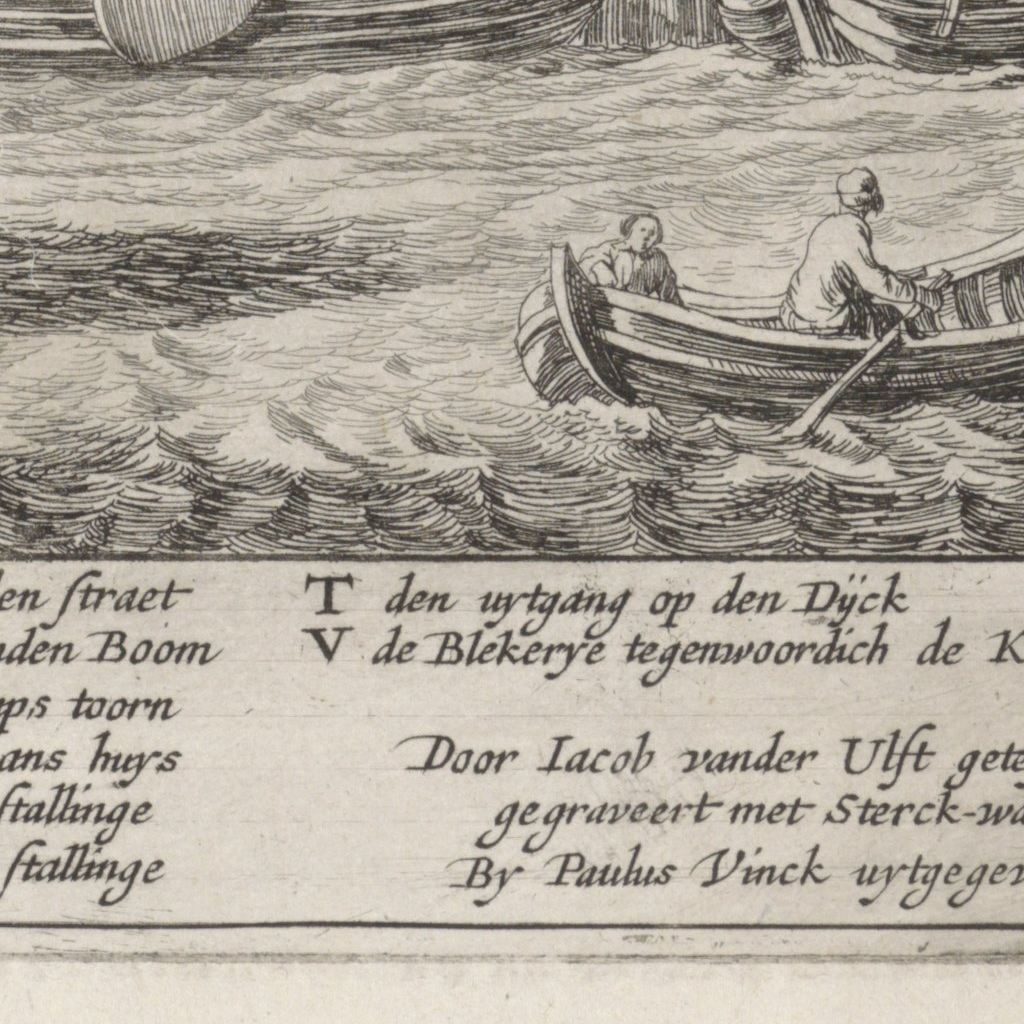 en straet
den Boom
ps toorn
ans huys
stallinge
stallinge
T den uytgang op den Dÿck
V de Blekerye tegenwoordich de K
Door Iacob vander Ulft gete
gegraveert met Sterck-wa
By Paulus Vinck uytgegev